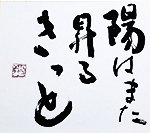 陽はまた
昇る
きっと